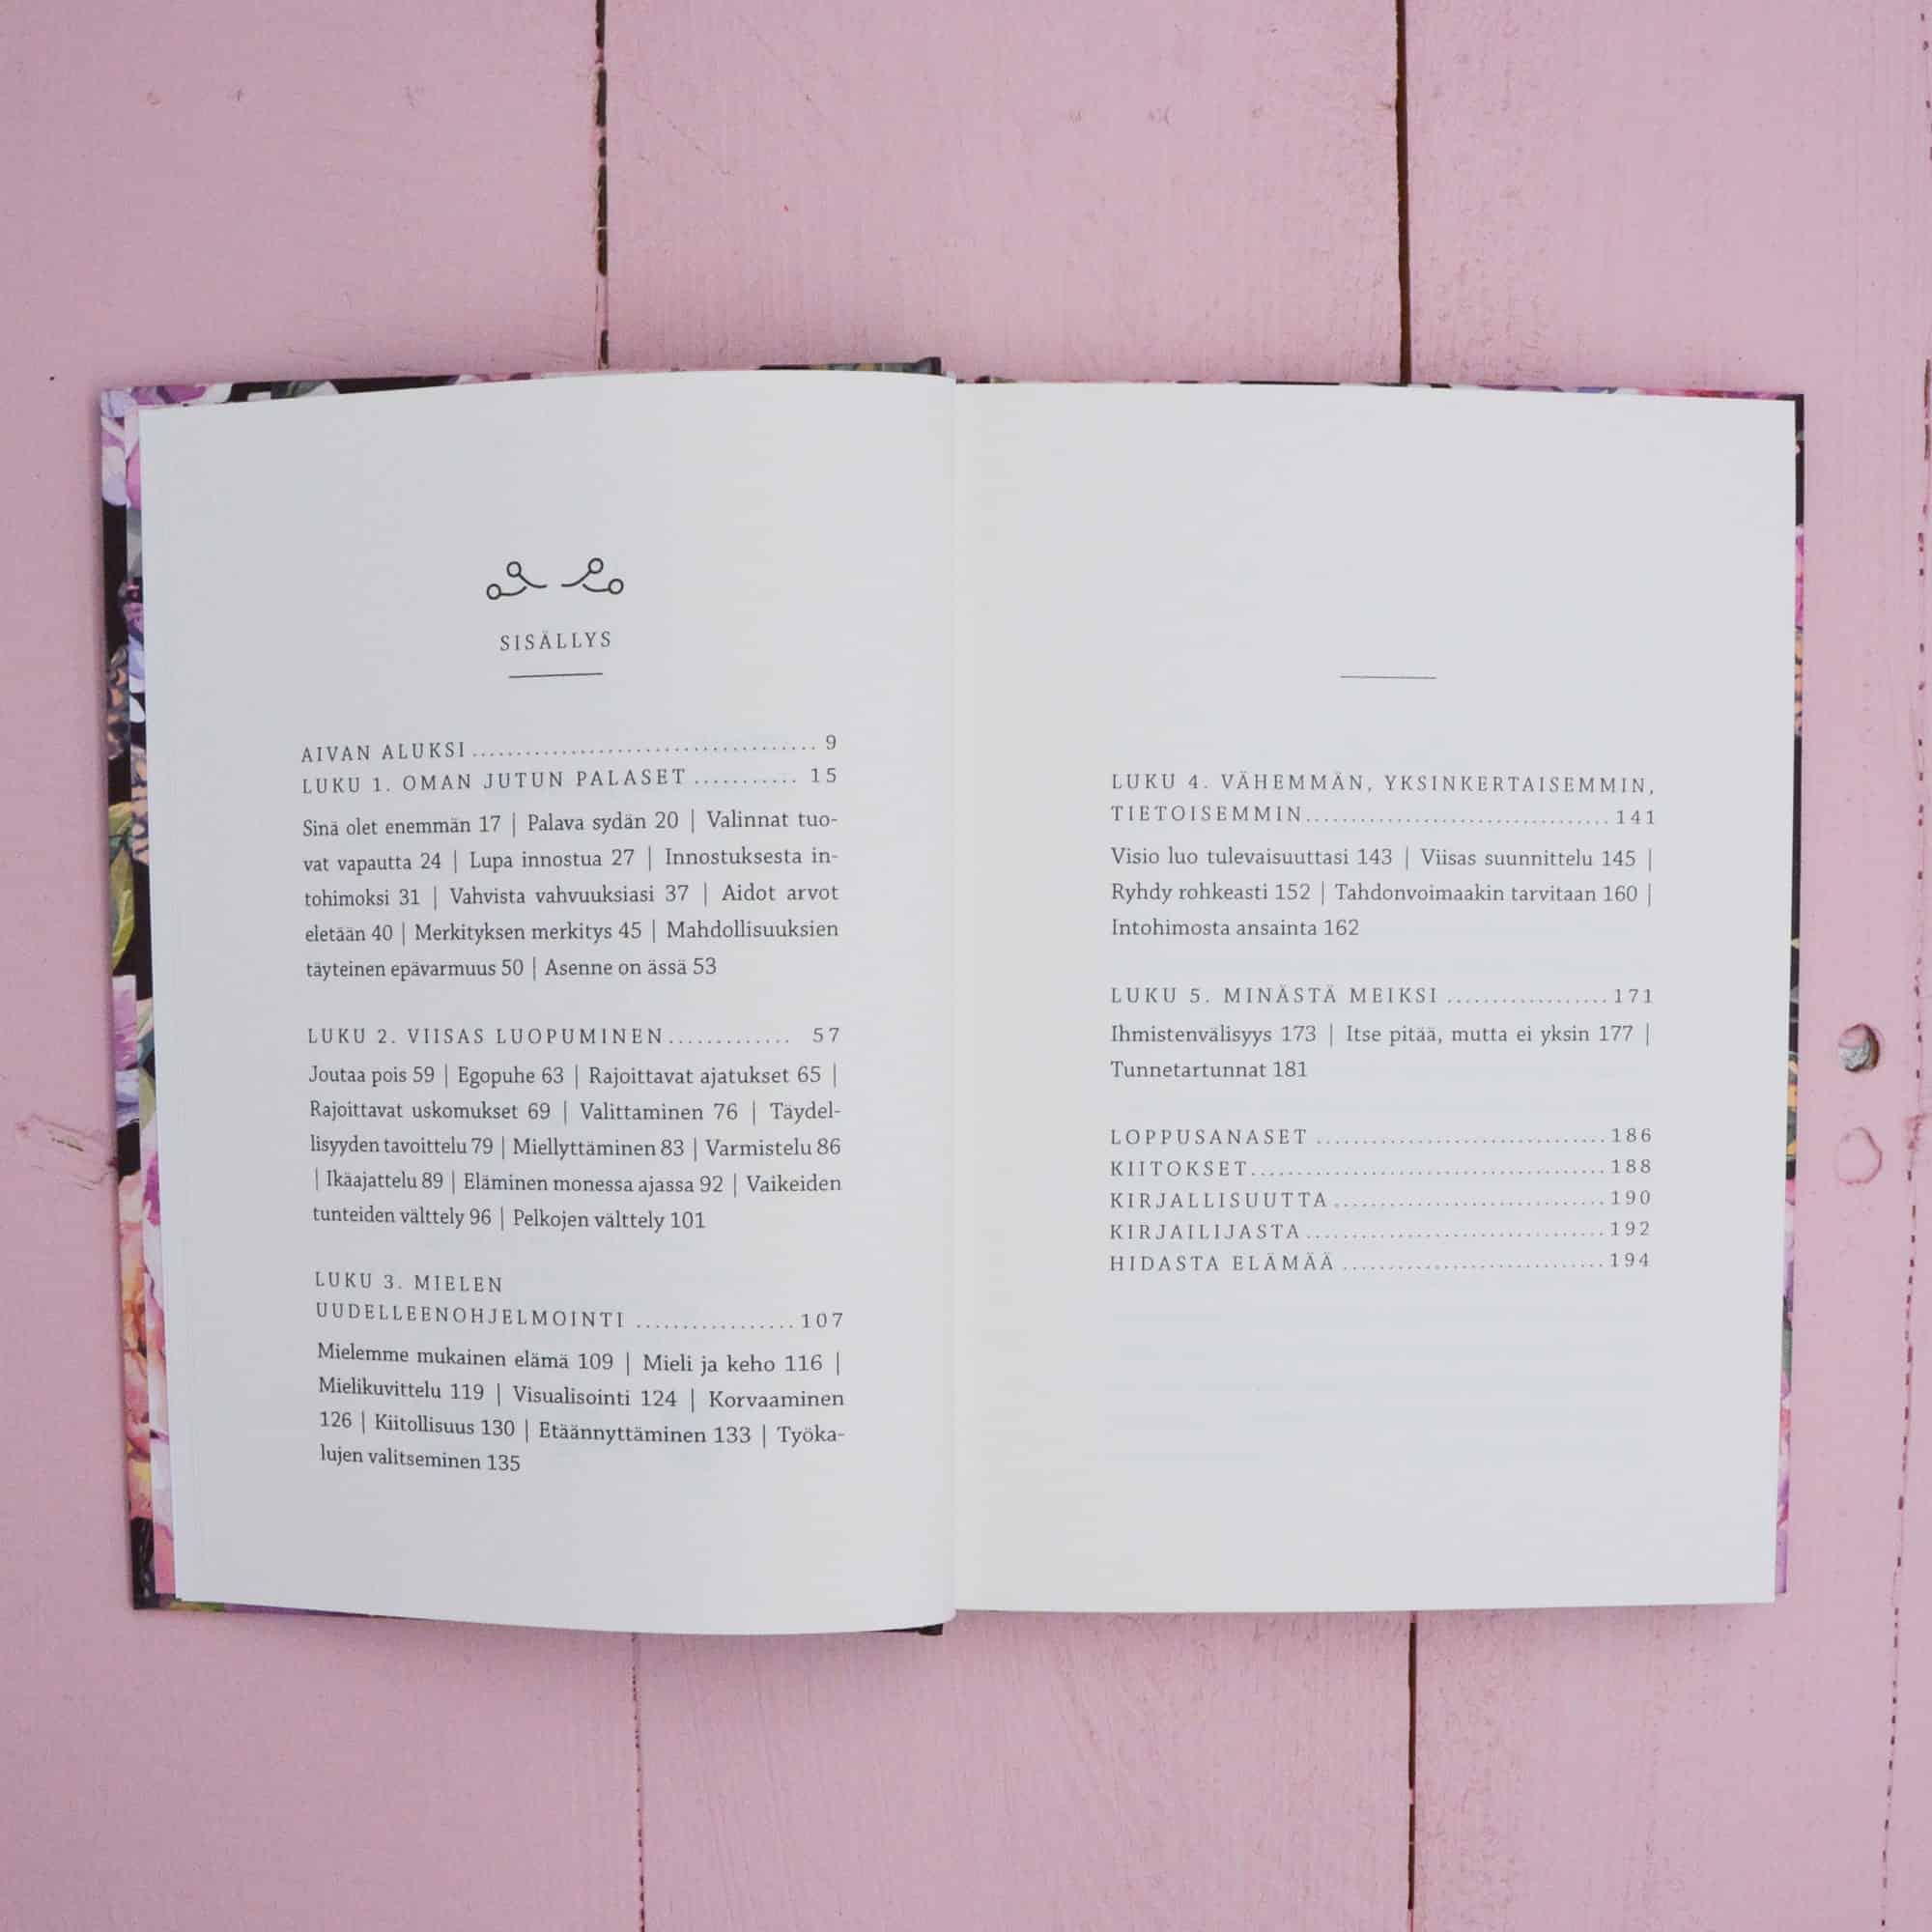 SISÄLLYS
AIVAN ALUKSI ...................................... 9
LUKU 1. OMAN JUTUN PALASET ........... 15
Sinä olet enemmän 17 | Palava sydän 20 | Valinnat tuo-
vat vapautta 24 | Lupa innostua 27 | Innostuksesta in-
tohimoksi 31 | Vahvista vahvuuksiasi 37 | Aidot arvot
eletään 40 | Merkityksen merkitys 45 | Mahdollisuuksien
täyteinen epävarmuus 50 | Asenne on ässä 53
LUKU 2. VIISAS LUOPUMINEN ............. 57
Joutaa pois 59 | Egopuhe 63 | Rajoittavat ajatukset 65 |
Rajoittavat uskomukset 69 | Valittaminen 76 | Täydel-
lisyyden tavoittelu 79 | Miellyttäminen 83 | Varmistelu 86
| Ikäajattelu 89 | Eläminen monessa ajassa 92 | Vaikeiden
tunteiden välttely 96 | Pelkojen välttely 101
LUKU 3. MIELEN
UUDELLEENOHJELMOINTI ................. 107
Mielemme mukainen elämä 109 | Mieli ja keho 116 |
Mielikuvittelu 119 | Visualisointi 124 | Korvaaminen
126 | Kiitollisuus 130 | Etäännyttäminen 133 | Työka-
lujen valitseminen 135
LUKU 4. VÄHEMMÄN, YKSINKERTAISEMMIN,
TIETOISEMMIN .................................. 141
Visio luo tulevaisuuttasi 143 | Viisas suunnittelu 145 |
Ryhdy rohkeasti 152 | Tahdonvoimaakin tarvitaan 160 |
Intohimosta ansainta 162
LUKU 5. MINÄSTÄ MEIKSI .................. 171
Ihmistenvälisyys 173 | Itse pitää, mutta ei yksin 177 |
Tunnetartunnat 181
LOPPUSANASET ................................ 186
KIITOKSET ....................................... 188
KIRJALLISUUTTA .............................. 190
KIRJAILIJASTA ................................. 192
HIDASTA ELÄMÄÄ ............................. 194